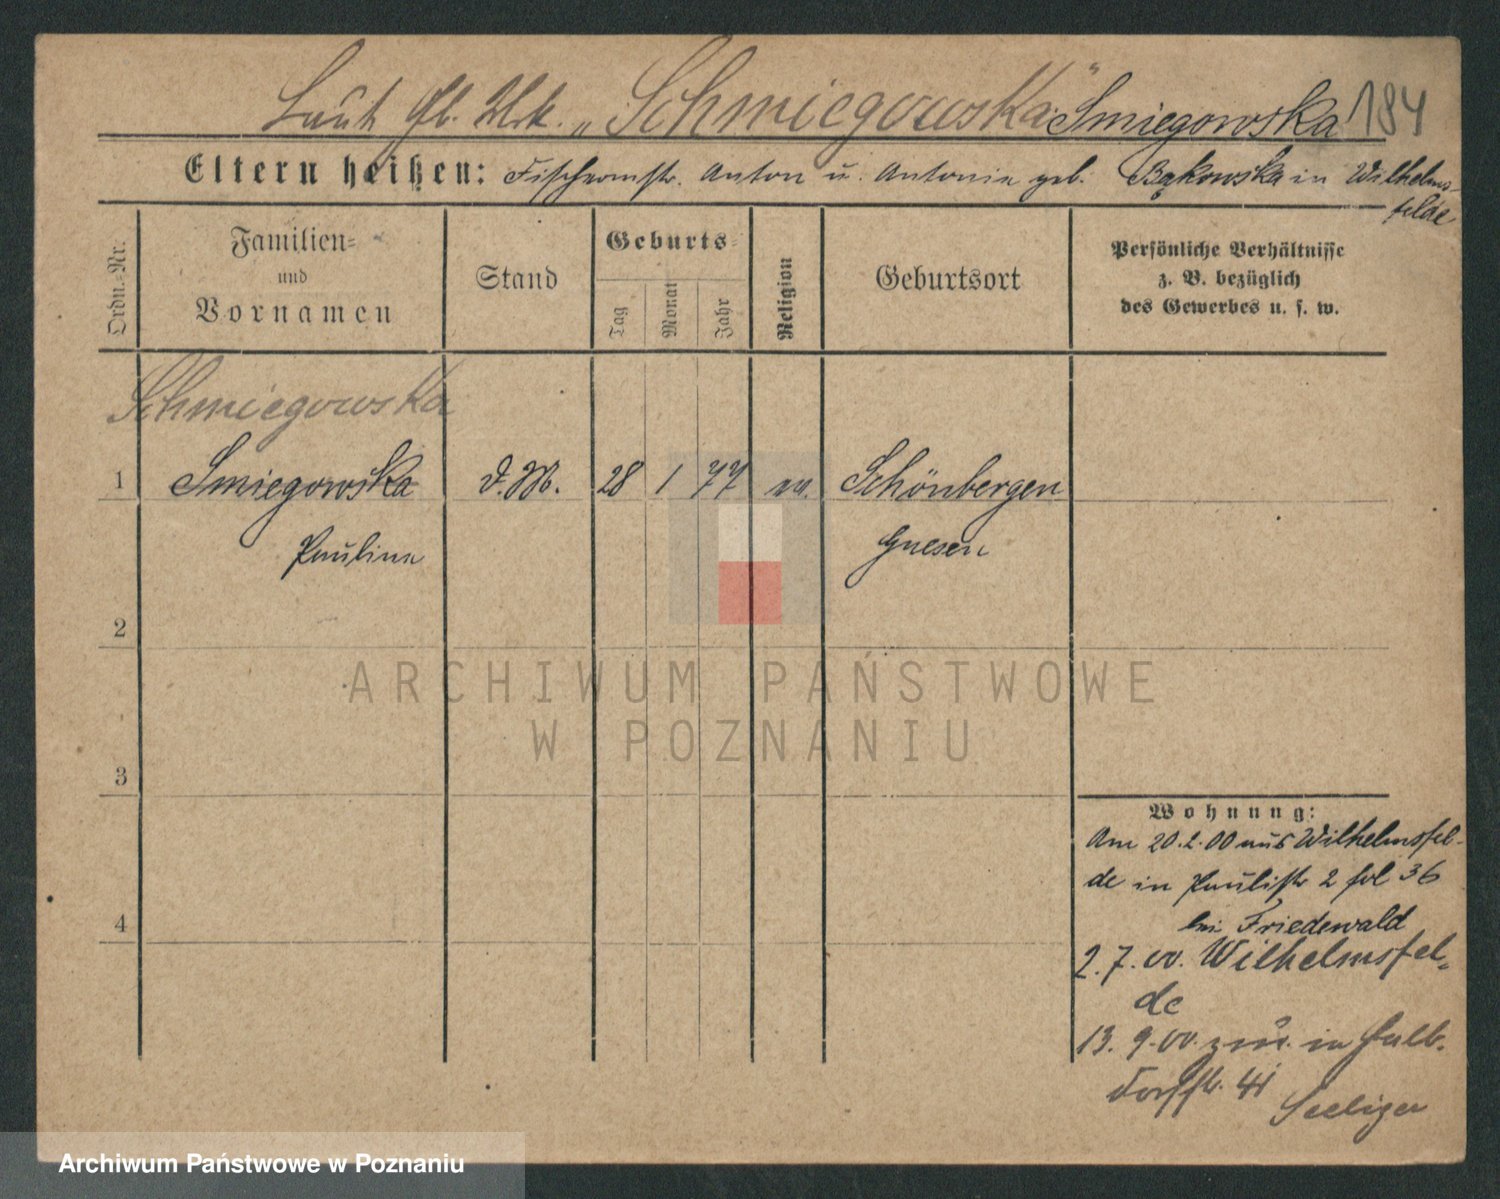 Laut Gb. Urk. „Schmiegowska“ Smiegowska 184
Eltern heißen: Fischermstr. Anton u. Antonie geb. Bąkowska in Wilhelms-
felde
Ordn.-Nr.
Familien-
und
Vornamen
Stand
Geburts-
Tag
Monat
Jahr
Religion
Geburtsort
Persönliche Verhältnisse
z. B. bezüglich
des Gewerbes u. s. w.
Schmiegowska
1 Smiegowska D. M. 28 1 77 Schönbergen
Pauline Gnesen
2
3
4
Wohnung:
Am 20.2.00 aus Wilhelmsfel-
de in Paulistr 2 fol 36
bei Friedewald
2.7.00. Wilhelmsfel-
de
13. 9.00. zur. in
dorfstr. Seeliger
ARCHIWUM PAŃSTWOWE
W POZNANIU
Archiwum Państwowe w Poznaniu